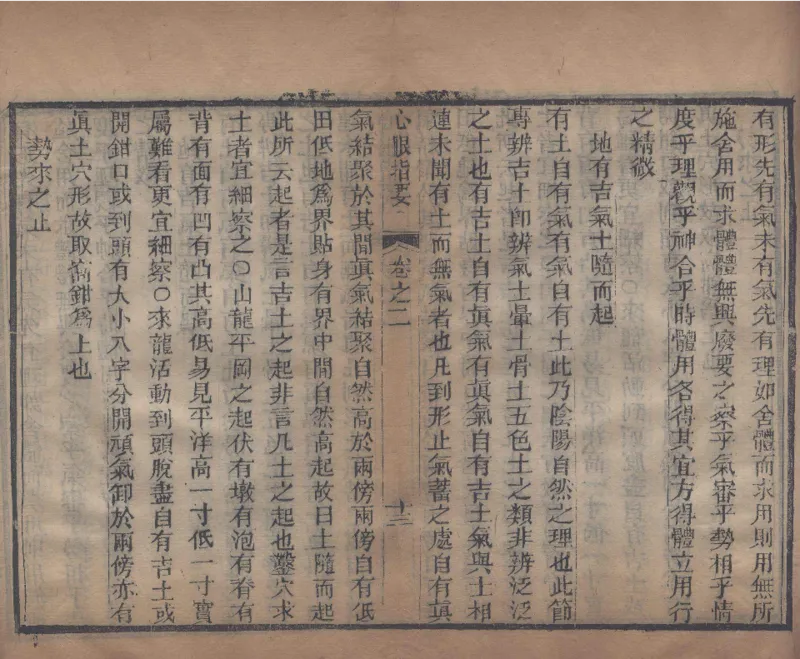 有形先有氣未有氣先有理如舍體而求用則用無所
施舍用而求體體無與廢要之察乎氣審乎勢相乎情
度乎理觀乎神合乎時體用各得其宜方得體立用行
之精微
地有吉氣土隨而起
有土自有氣有氣自有土此乃陰陽自然之理也此節
專辨吉土卽辨氣土暈土骨土五色土之類非辨泛泛
之土也有吉土自有眞氣有眞氣自有吉土氣與土相
連未聞有土而無氣者也凡到形止氣蓄之處自有眞
心眼指要
卷之二
十三
氣結聚於其間眞氣結聚自然高於兩傍兩傍自有低
田低地爲界貼身有界中間自然高起故曰土隨而起
此所云起者是言吉土之起非言凡土之起也鑿穴求
土者宜細察之○山龍平岡之起伏有墩有泡有脊有
背有面有凹有凸其高低易見平洋高一寸低一寸實
屬難看更宜細察○來龍活動到頭脫盡自有吉土或
開鉗口或到頭有大小八字分開頑氣卸於兩傍亦有
眞土穴形故取窩鉗爲上也
勢來之止